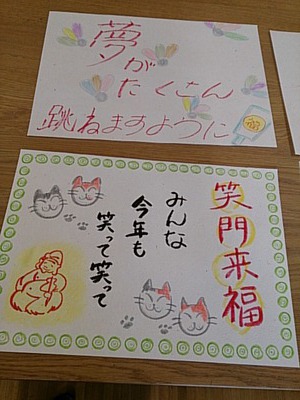 夢が
たくさん
跳ねますように
笑門来福
みんな
今年も
笑って笑って